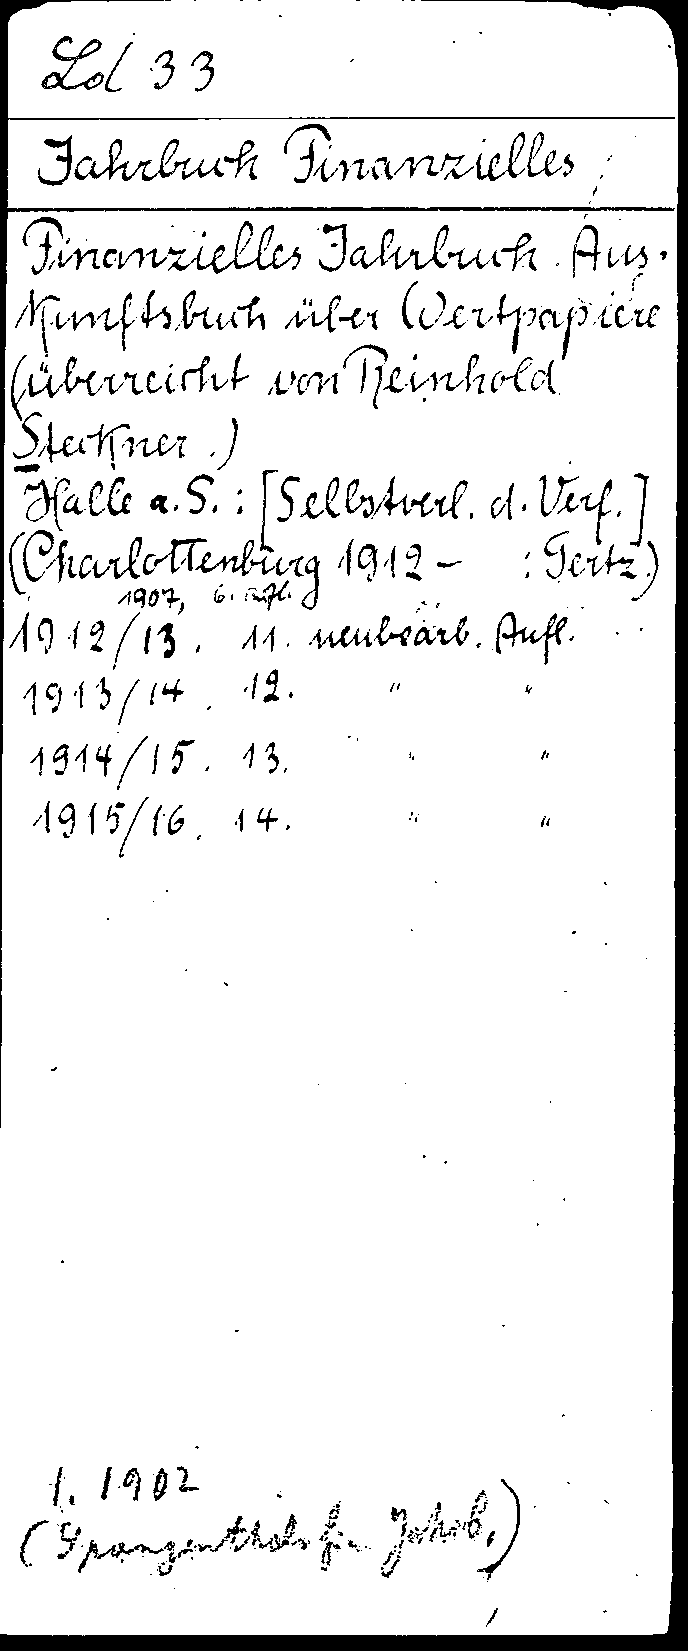 Ld 33
Jahrbuch Finanzielles
Finanzielles Jahrbuch. Aus-
kunftsbuch über Wertpapiere
(überreicht von Reinhold
Steckner.)
Halle a. S. : [Selbstverl. d. Verf.]
(Charlottenburg 1912 - : Gertz.)
1907, 6. Aufl.
1912/13. 11. neubearb. Aufl.
1913/14. 12. " "
1914/15. 13. " "
1915/16. 14. " "
1. 1902
(Spangenthals fin. Jahrb.)